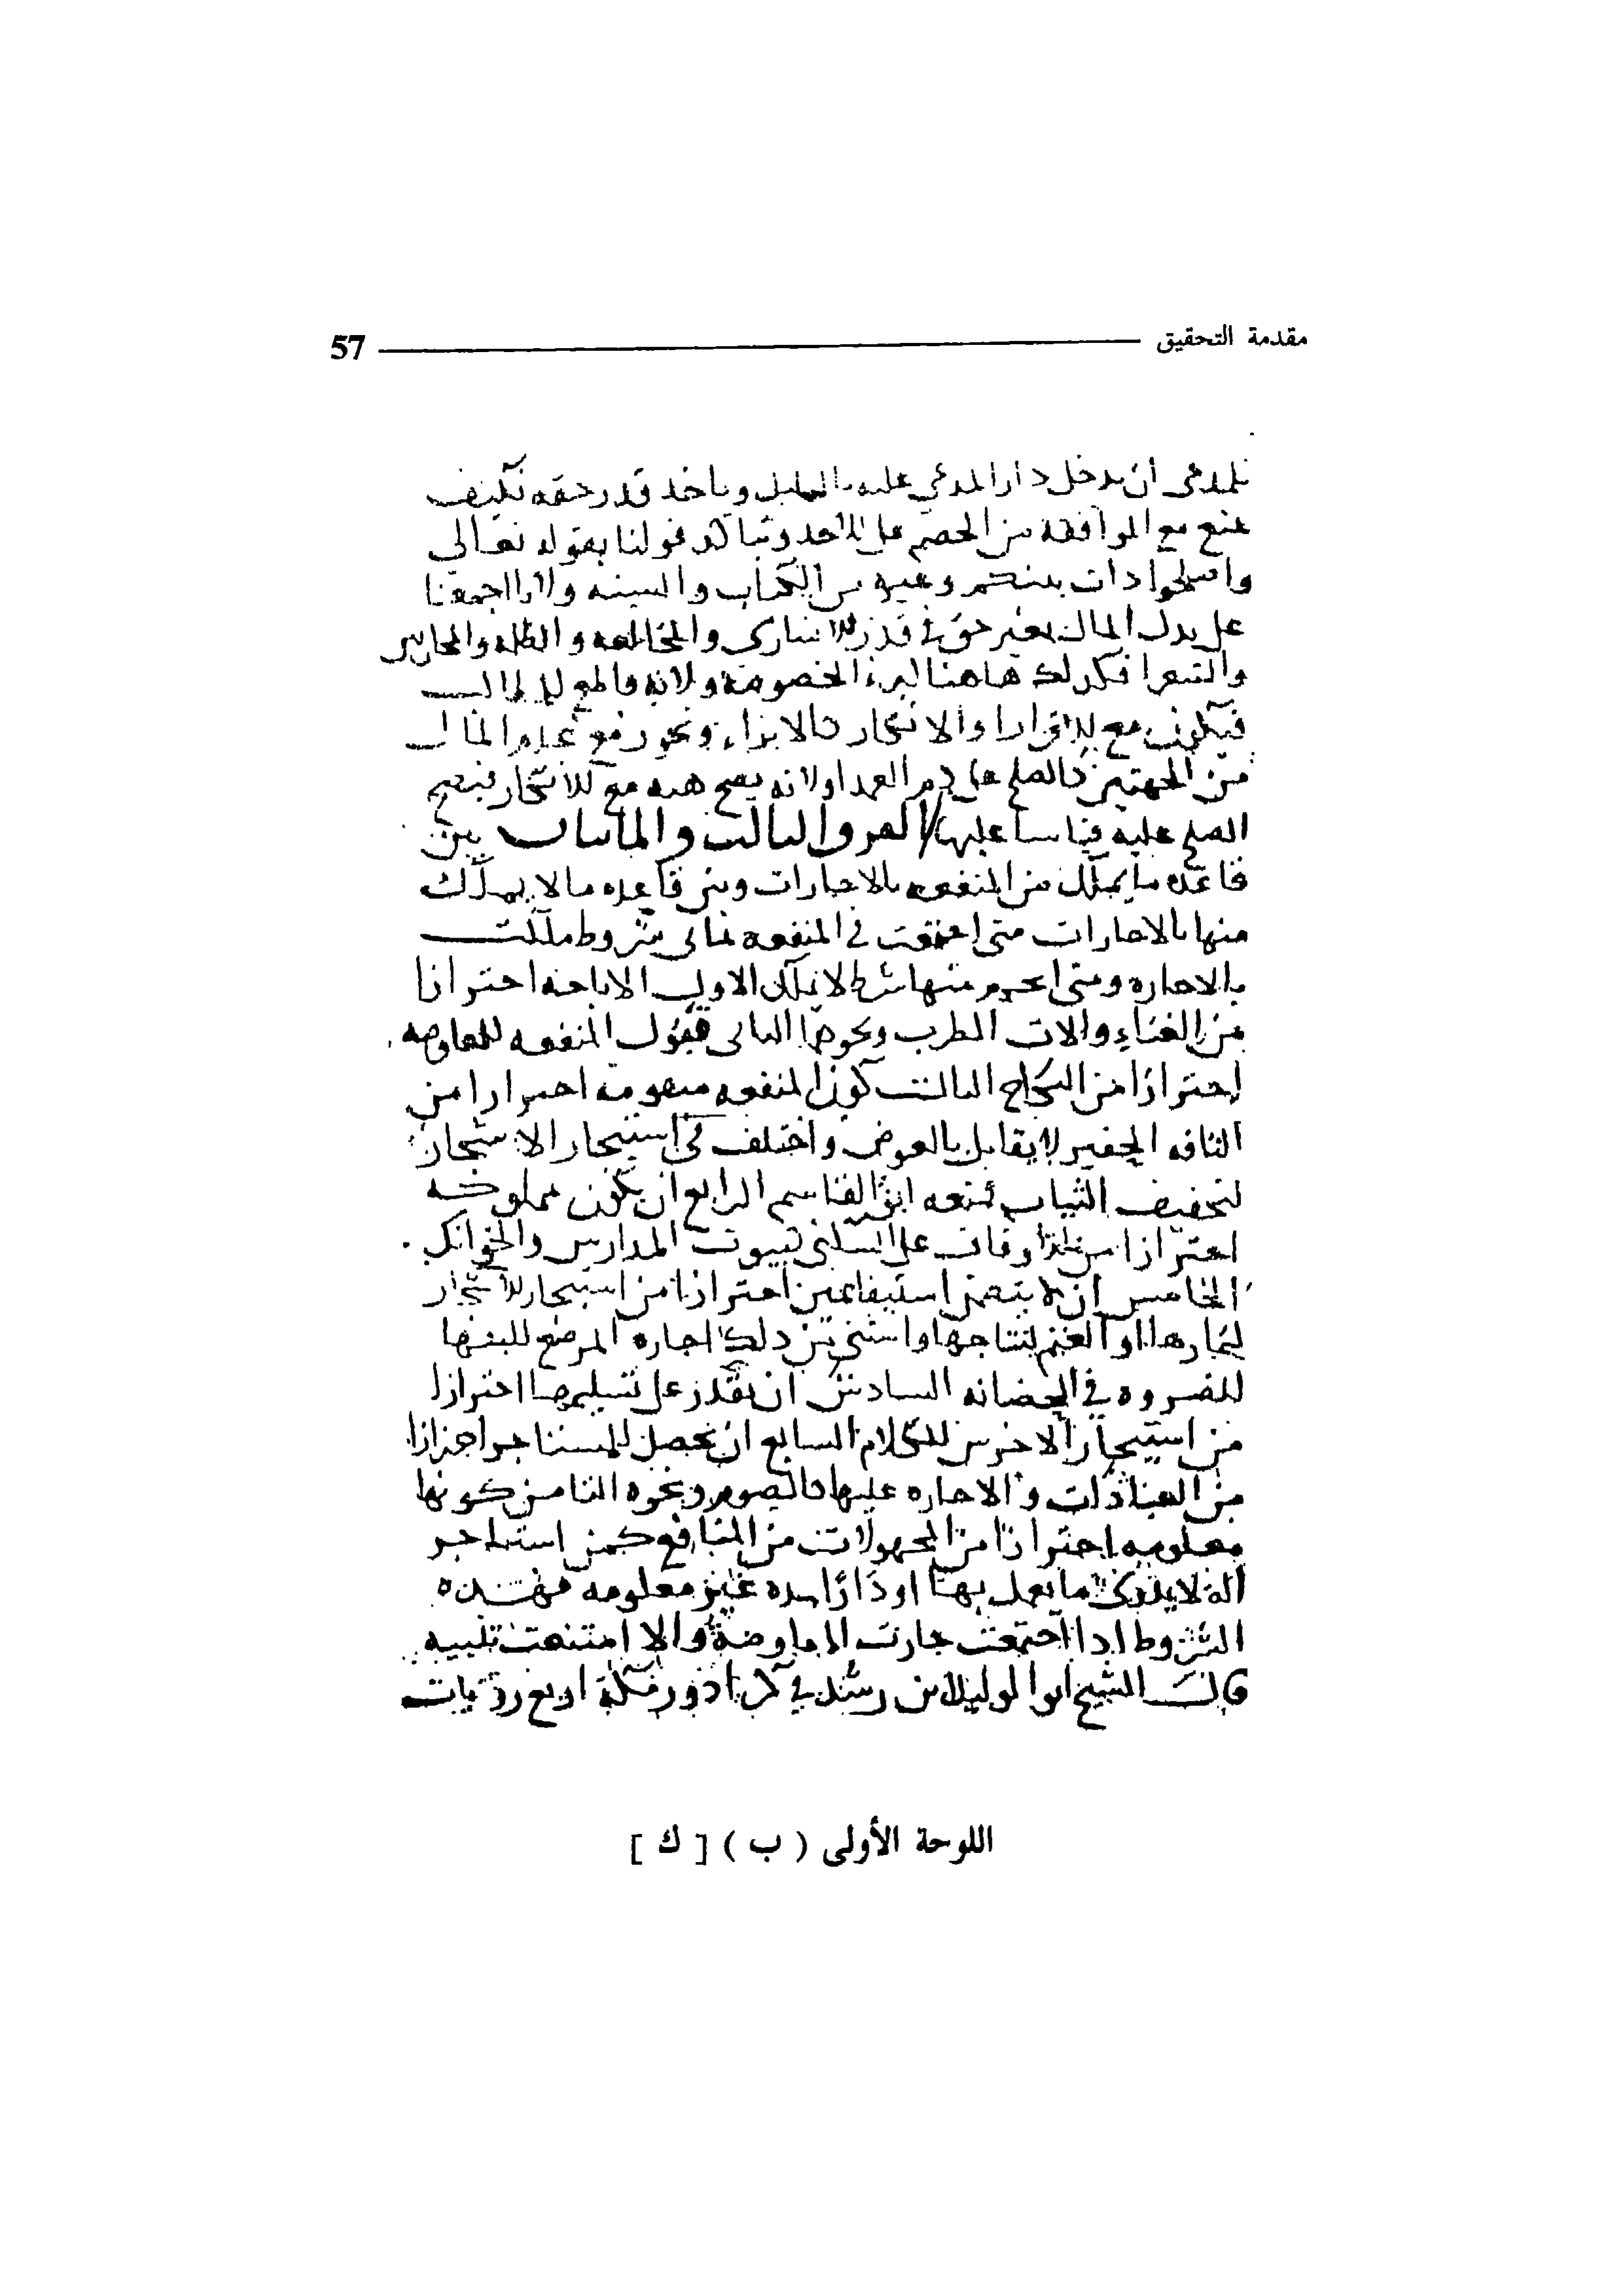 مقدمة التحقيق 57
للمدعى أن يدخل دار المدعى عليه بالليل وياخذ قدر حقه فكيف
يمنع مع الموافقة من الخصم على الاخذ وتتاكد قولنا بقوله تعالى
واصلحوا ذات بينكم وغيره من الكتاب والسنه ولانا اجمعنا
على بذل المال بغير حق في فدا الاسارى والمخالعه والظلمه والمحاربين
والشعرا فكذلك هاهنا لدرء الخصومة ولانه قاطع للمطالبه
فيكون مع الاقرار والانكار كالابراء ونحو رفع عدم المال
من الجهتين كالصلح على دم العمد اولانه يصح هبه مع الانكار فيصح
الصلح عليه قياسا عليها الفرق الثالث والماتان بين
قاعدة ما يملك من المنفعه بالاجارات وبين قاعده مالا يملك
منها بالاجارات متى اجتمعت في المنفعه ثماني شروط ملكت
بالاجاره ومتى انخرم منها شرط لا تملك الاول الاباحه احترازا
من الغناء والات الطرب ونحوها الثاني قبول المنفعه للمعاوضه
احترازا من النكاح الثالث كون المنفعه متقومة احترازا من
التافه الحقير لا يقابل بالعوض واختلف في استيجار الاشجار
لتجفيف الثياب فمنعه ابن القاسم الرابع ان يكون مملوكه
احترازا من الاوقاف على السكنى كبيوت المدارس والخوانك
الخامس ان لا يتضمن استيفاء عين احترازا من استيجار الاشجار
لثمارها او الغنم لنتاجها واستثني من ذلك اجاره المرضع للبنها
للضروره في الحضانه السادس ان يقدر على تسليمها احترازا
من استيجار الاخرس للكلام السابع ان تحصل للمستاجر احترازا
من العبادات والاجاره عليها كالصوم ونحوه الثامن كونها
معلومه احترازا من المجهولات من المنافع كمن استاجر
الة لا يدرى ما يعمل بها او دارا مده غير معلومه فهذه
الشروط اذا اجتمعت جازت المعاوضة والا امتنعت تنبيه
قال الشيخ ابوالوليد بن رشد في كراء دور مكة اربع روايات
اللوحة الأولى ( ب ) [ ك ]